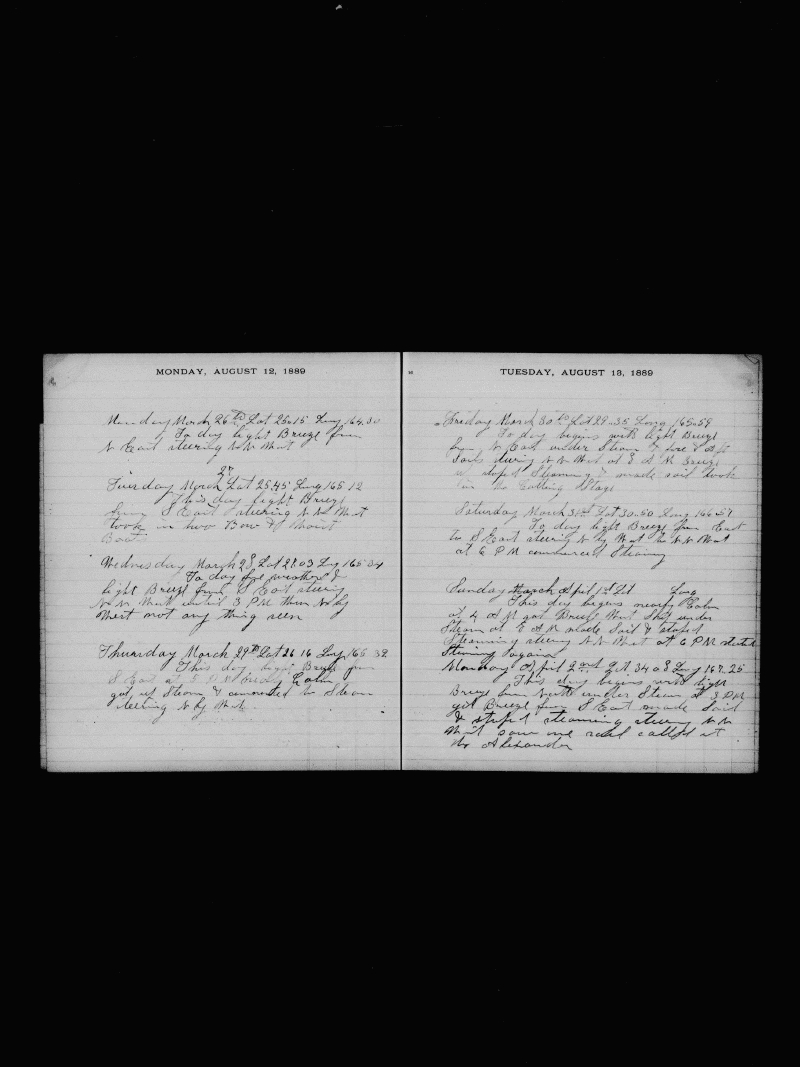 MONDAY, AUGUST 12, 1889
Monday March 26th Lat 25-15 Long 164.30
To day light Breeze from
N East steering N N West
27
Tuesday March Lat 25.45 Long 165 12
This day light Breeze
from S East steering N N West
took in two Bow & Waist
Boats
Wednesday March 28 Lat 27.03 Long 165 34
To day fine weather &
light Breeze from S East steering
N N West until 3 PM then N by
West not any thing seen
Thursday March 29th Lat 28 16 Long 165 38
This day light Breeze from
S East at nearly Calm
got up Steam & commenced to Steam
steering N by West
TUESDAY, AUGUST 13, 1889
Friday March 30th Lat 29-35 Long 165-59
To day begins with light Breeze
from N East under Steam & fore & aft
Sails steering N N West at 8 A M Breeze
stoped Steaming & made sail took
in the Cutting Stage
Saturday March 31st Lat 30-50 Long 166-57
To day light Breeze from East
to S East steering N by West to N N West
at 6 P M commenced Steaming
Sunday March April 1st Lat Long
This day begins nearly Calm
at 4 A M got Breeze West Ship under
Steam at 8 A M made Sail & stoped
Steaming steering N N West at 6 PM started
Steaming again
Monday April 2nd Lat 34 08 Long 167.25
This day begins with light
Breeze from North under Steam at 3 P M
got Breeze from S East made Sail
& stoped steaming steering N N
West saw one seal called at
the Alexander